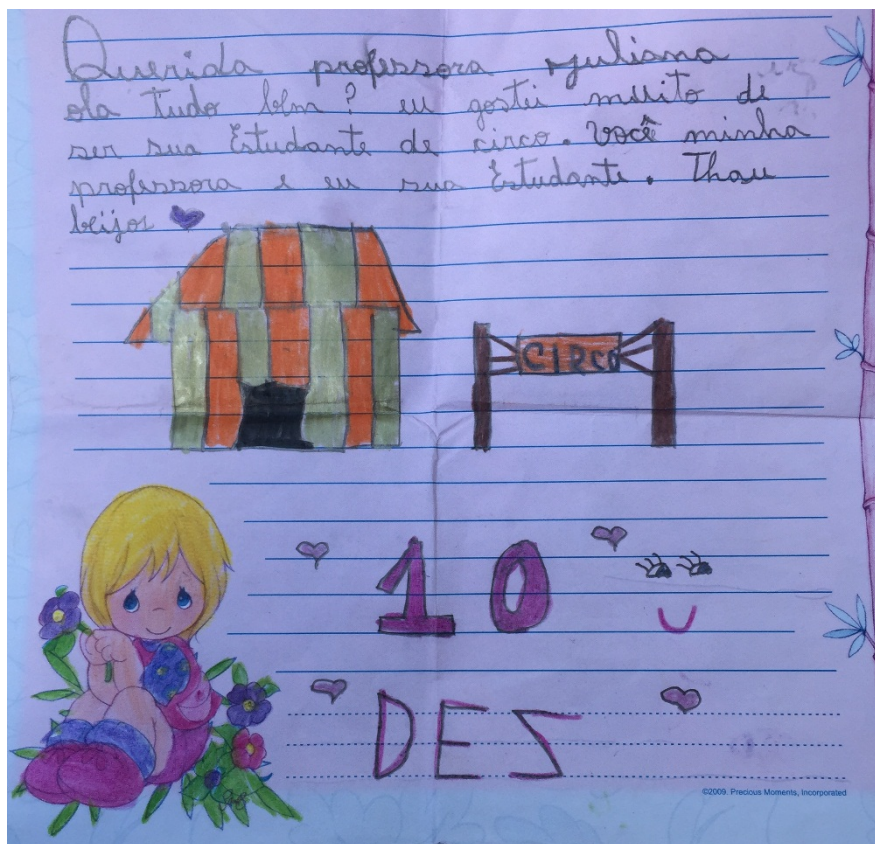 Querida professora Juliana
ola tudo bem? eu gostei muito de
ser sua Estudante de circo. Você minha
professora e eu sua Estudante. Thau
beijos
CIRCO
10
DES
©2009. Precious Moments, Incorporated